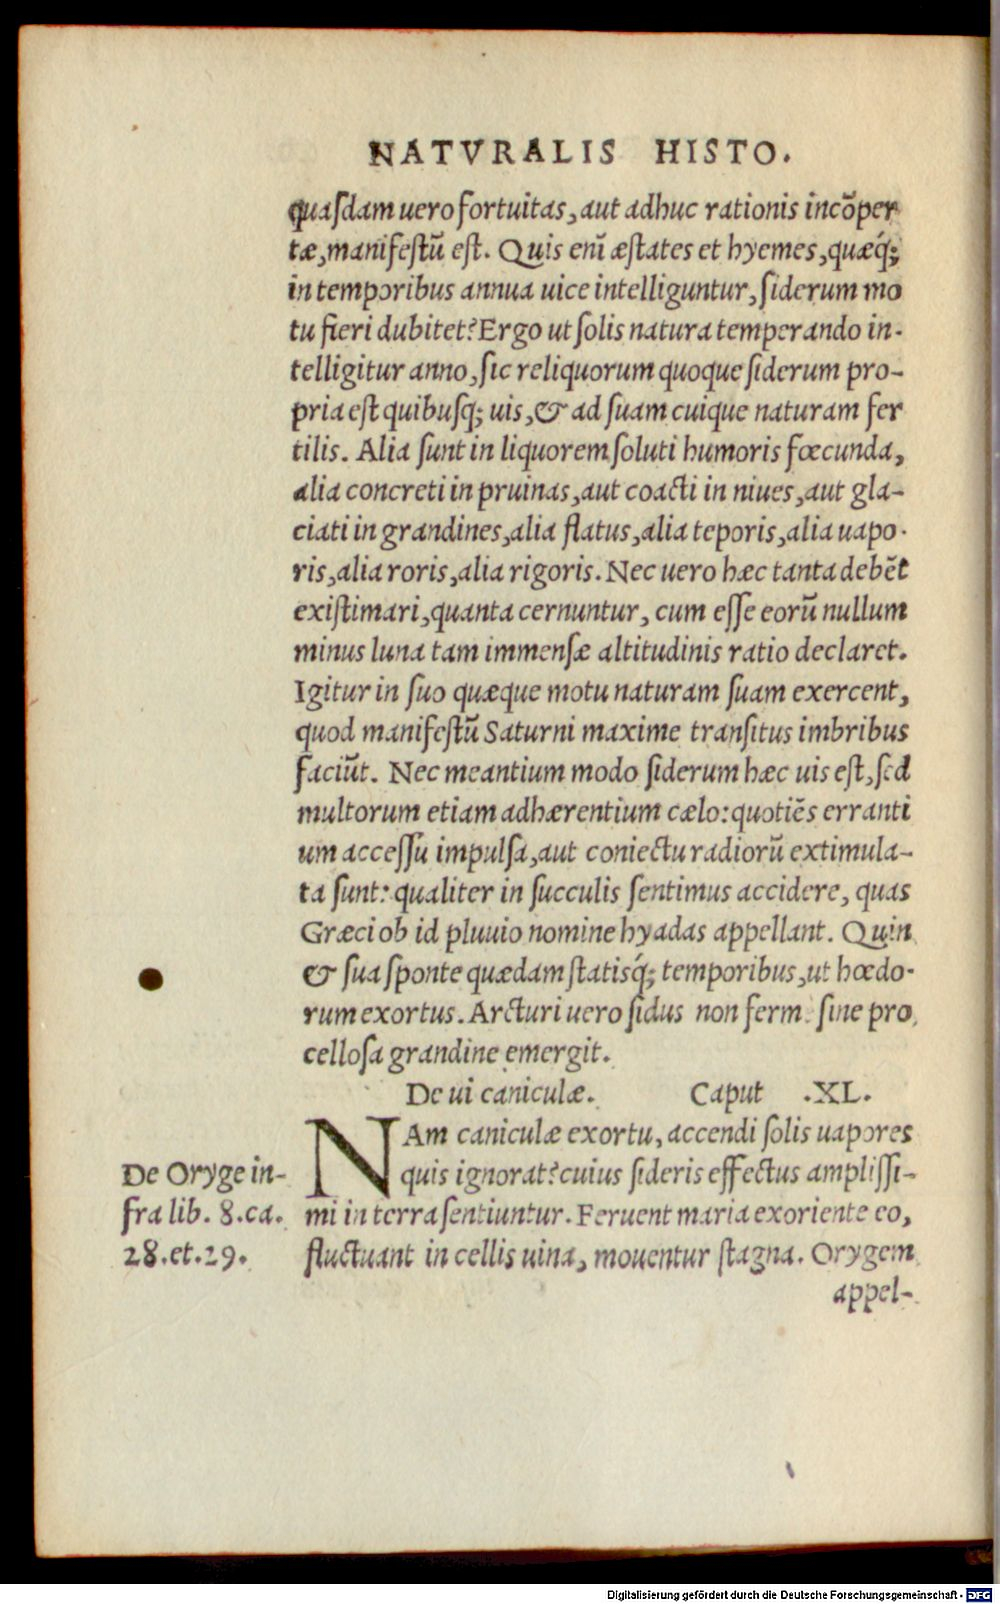 NATVRALIS HISTO.
quaſdam uero fortuitas, aut adhuc rationis incõper
tæ, manifeſtũ eſt. Quis enĩ æſtates et hyemes, quæq́;
in temporibus annua uice intelliguntur, ſiderum mo
tu fieri dubitet? Ergo ut ſolis natura temperando in-
telligitur anno, ſic reliquorum quoque ſiderum pro-
pria eſt quibuſq; uis, & ad ſuam cuique naturam fer
tilis. Alia ſunt in liquorem ſoluti humoris fœcunda,
alia concreti in pruinas, aut coacti in niues, aut gla-
ciati in grandines, alia flatus, alia teporis, alia uapo-
ris, alia roris, alia rigoris. Nec uero hæc tanta debẽt
exiſtimari, quanta cernuntur, cum eſſe eorũ nullum
minus luna tam immenſæ altitudinis ratio declaret.
Igitur in ſuo quæque motu naturam ſuam exercent,
quod manifeſtũ Saturni maxime tranſitus imbribus
faciũt. Nec meantium modo ſiderum hæc uis eſt, ſed
multorum etiam adhærentium cælo: quotiẽs erranti
um acceſſu impulſa, aut coniectu radiorũ extimula-
ta ſunt: qualiter in ſucculis ſentimus accidere, quas
Græci ob id pluuio nomine hyadas appellant. Quin
& ſua ſponte quædam ſtatisq́; temporibus, ut hœdo-
rum exortus. Arcturi uero ſidus non ferm. ſine pro
celloſa grandine emergit.
De ui caniculæ. Caput .XL.
NAm caniculæ exortu, accendi ſolis uapores
quis ignorat? cuius ſideris effectus ampliſſi-
mi in terra ſentiuntur. Feruent maria exoriente eo,
fluctuant in cellis uina, mouentur ſtagna. Orygem
appel-
De Oryge in-
fra lib. 8. ca.
28. et. 29.
Digitalisierung gefördert durch die Deutsche Forschungsgemeinschaft - DFG